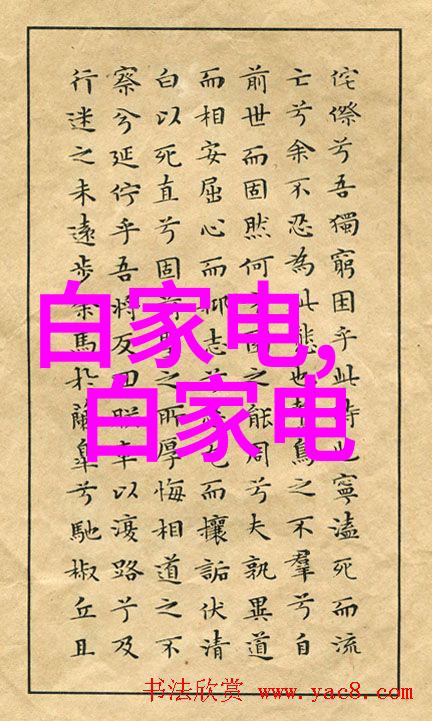 侘傺兮吾獨窮困乎此時也寧溘死而流
亡兮余不忍為此態也鳥之不羣兮自
前世而固然何之能周兮夫孰異道
而相安屈心而抑志兮而攘詬伏清
白以死直兮固之所厚悔相道之不
察兮延佇乎吾將反回朕車以復路兮及
行迷之未遠步余馬於蘭皋兮馳椒丘且
白家电,
白家电
书法欣赏 www.yac8.com